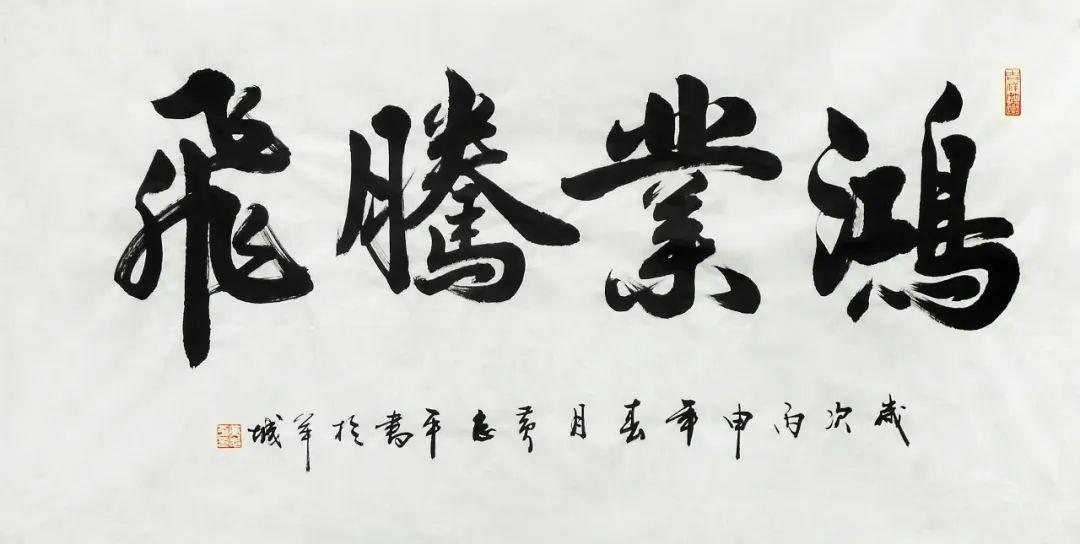 鴻業騰飛
歲次丙申年春月黄志平書於羊城